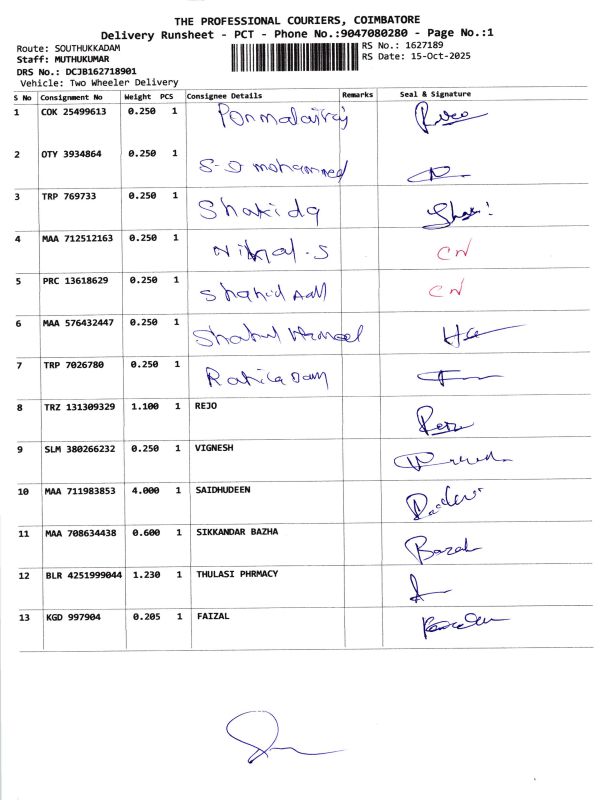 THE PROFESSIONAL COURIERS, COIMBATORE
Delivery Runsheet - PCT - Phone No.:9047080280 - Page No.:1
Route: SOUTHUKKADAM RS No.: 1627189
Staff: MUTHUKUMAR RS Date: 15-Oct-2025
DRS No.: DCJB162718901
Vehicle: Two Wheeler Delivery
S No Consignment No Weight PCS Consignee Details Remarks Seal & Signature
1 COK 25499613 0.250 1
2 OTY 3934864 0.250 1 S-S mohammed
3 TRP 769733 0.250 1 Shakida
4 MAA 712512163 0.250 1 Nihal.S CN
5 PRC 13618629 0.250 1 Shahid CN
6 MAA 576432447 0.250 1 Shahul Hameed
7 TRP 7026780 0.250 1
8 TRZ 131309329 1.100 1 REJO
9 SLM 380266232 0.250 1 VIGNESH
10 MAA 711983853 4.000 1 SAIDHUDEEN
11 MAA 708634438 0.600 1 SIKKANDAR BAZHA
12 BLR 4251999044 1.230 1 THULASI PHRMACY
13 KGD 997904 0.205 1 FAIZAL